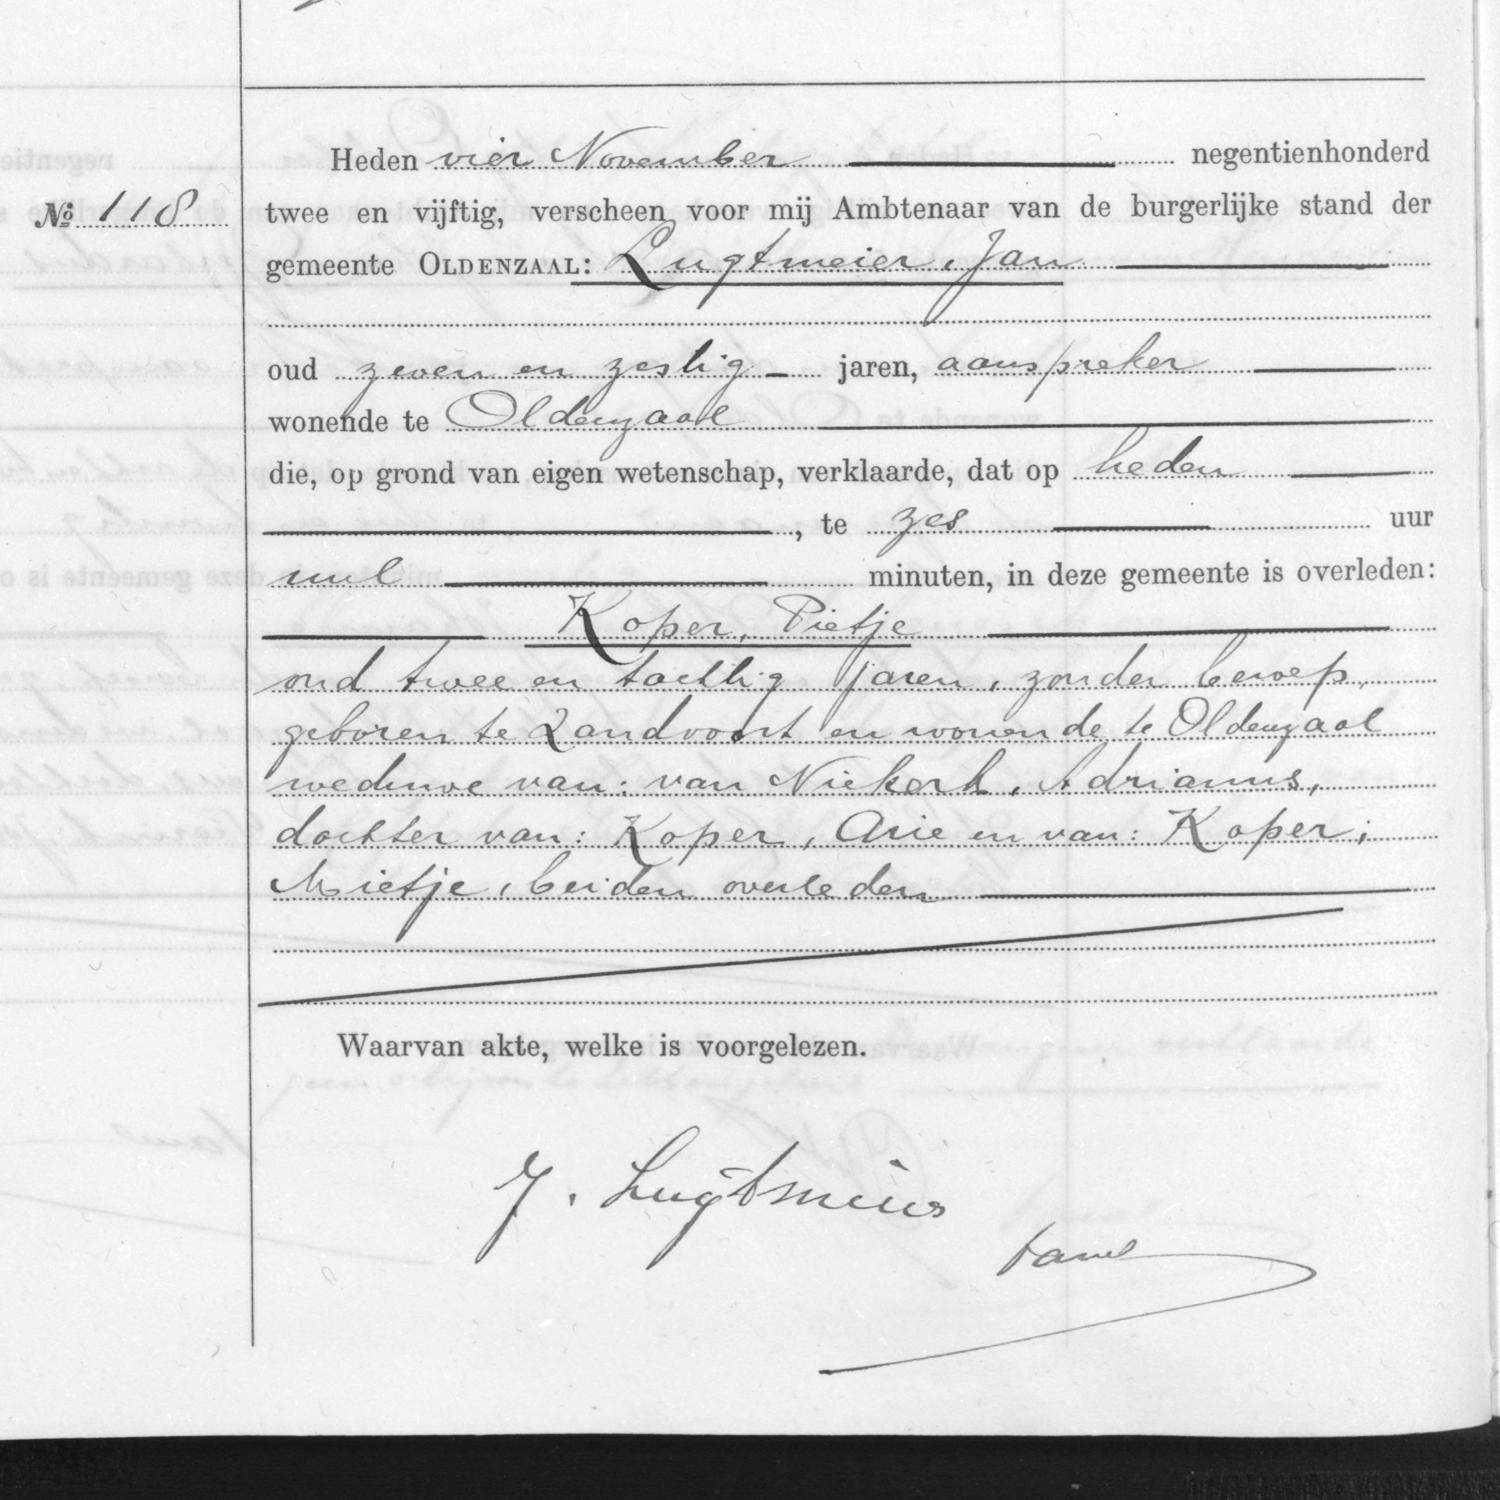 Heden vier November negentienhonderd
No 118 twee en vijftig, verscheen voor mij Ambtenaar van de burgerlijke stand der
gemeente OLDENZAAL: Lugtmeier, Jan
oud zeven en zestig jaren, aanspreker
wonende te Oldenzaal
die, op grond van eigen wetenschap, verklaarde, dat op heden
, te zes uur
nul minuten, in deze gemeente is overleden:
Koper, Pietje
oud twee en tachtig jaren, zonder beroep,
geboren te Zandvoort en wonende te Oldenzaal
weduwe van: van Niekerk, Adrianus,
dochter van: Koper, Arie en van: Koper,
Mietje, beiden overleden
Waarvan akte, welke is voorgelezen.
J. Lugtmeier